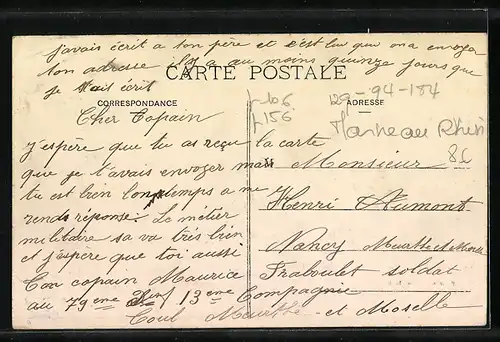 j'avais écrit a ton père et c'est lui que on a envoyer
ton adresse il y a au moins quinze jours que
je t'ais écrit
CARTE POSTALE
CORRESPONDANCE
ADRESSE
29-94-184
Marne au Rhin
Cher Copain
J'yspère que tu as reçu la carte
que je t'avais envoyer mais
tu est bien longtemps a me
rends réponse. Le métier
militaire sa va très bien
et j'espère que toi aussi
Ton copain Maurice
Traboulet soldat
au 79eme / 13eme Compagnie
Toul Meurthe et Moselle
Monsieur
Henri Aumont
Nancy Meurthe et Moselle